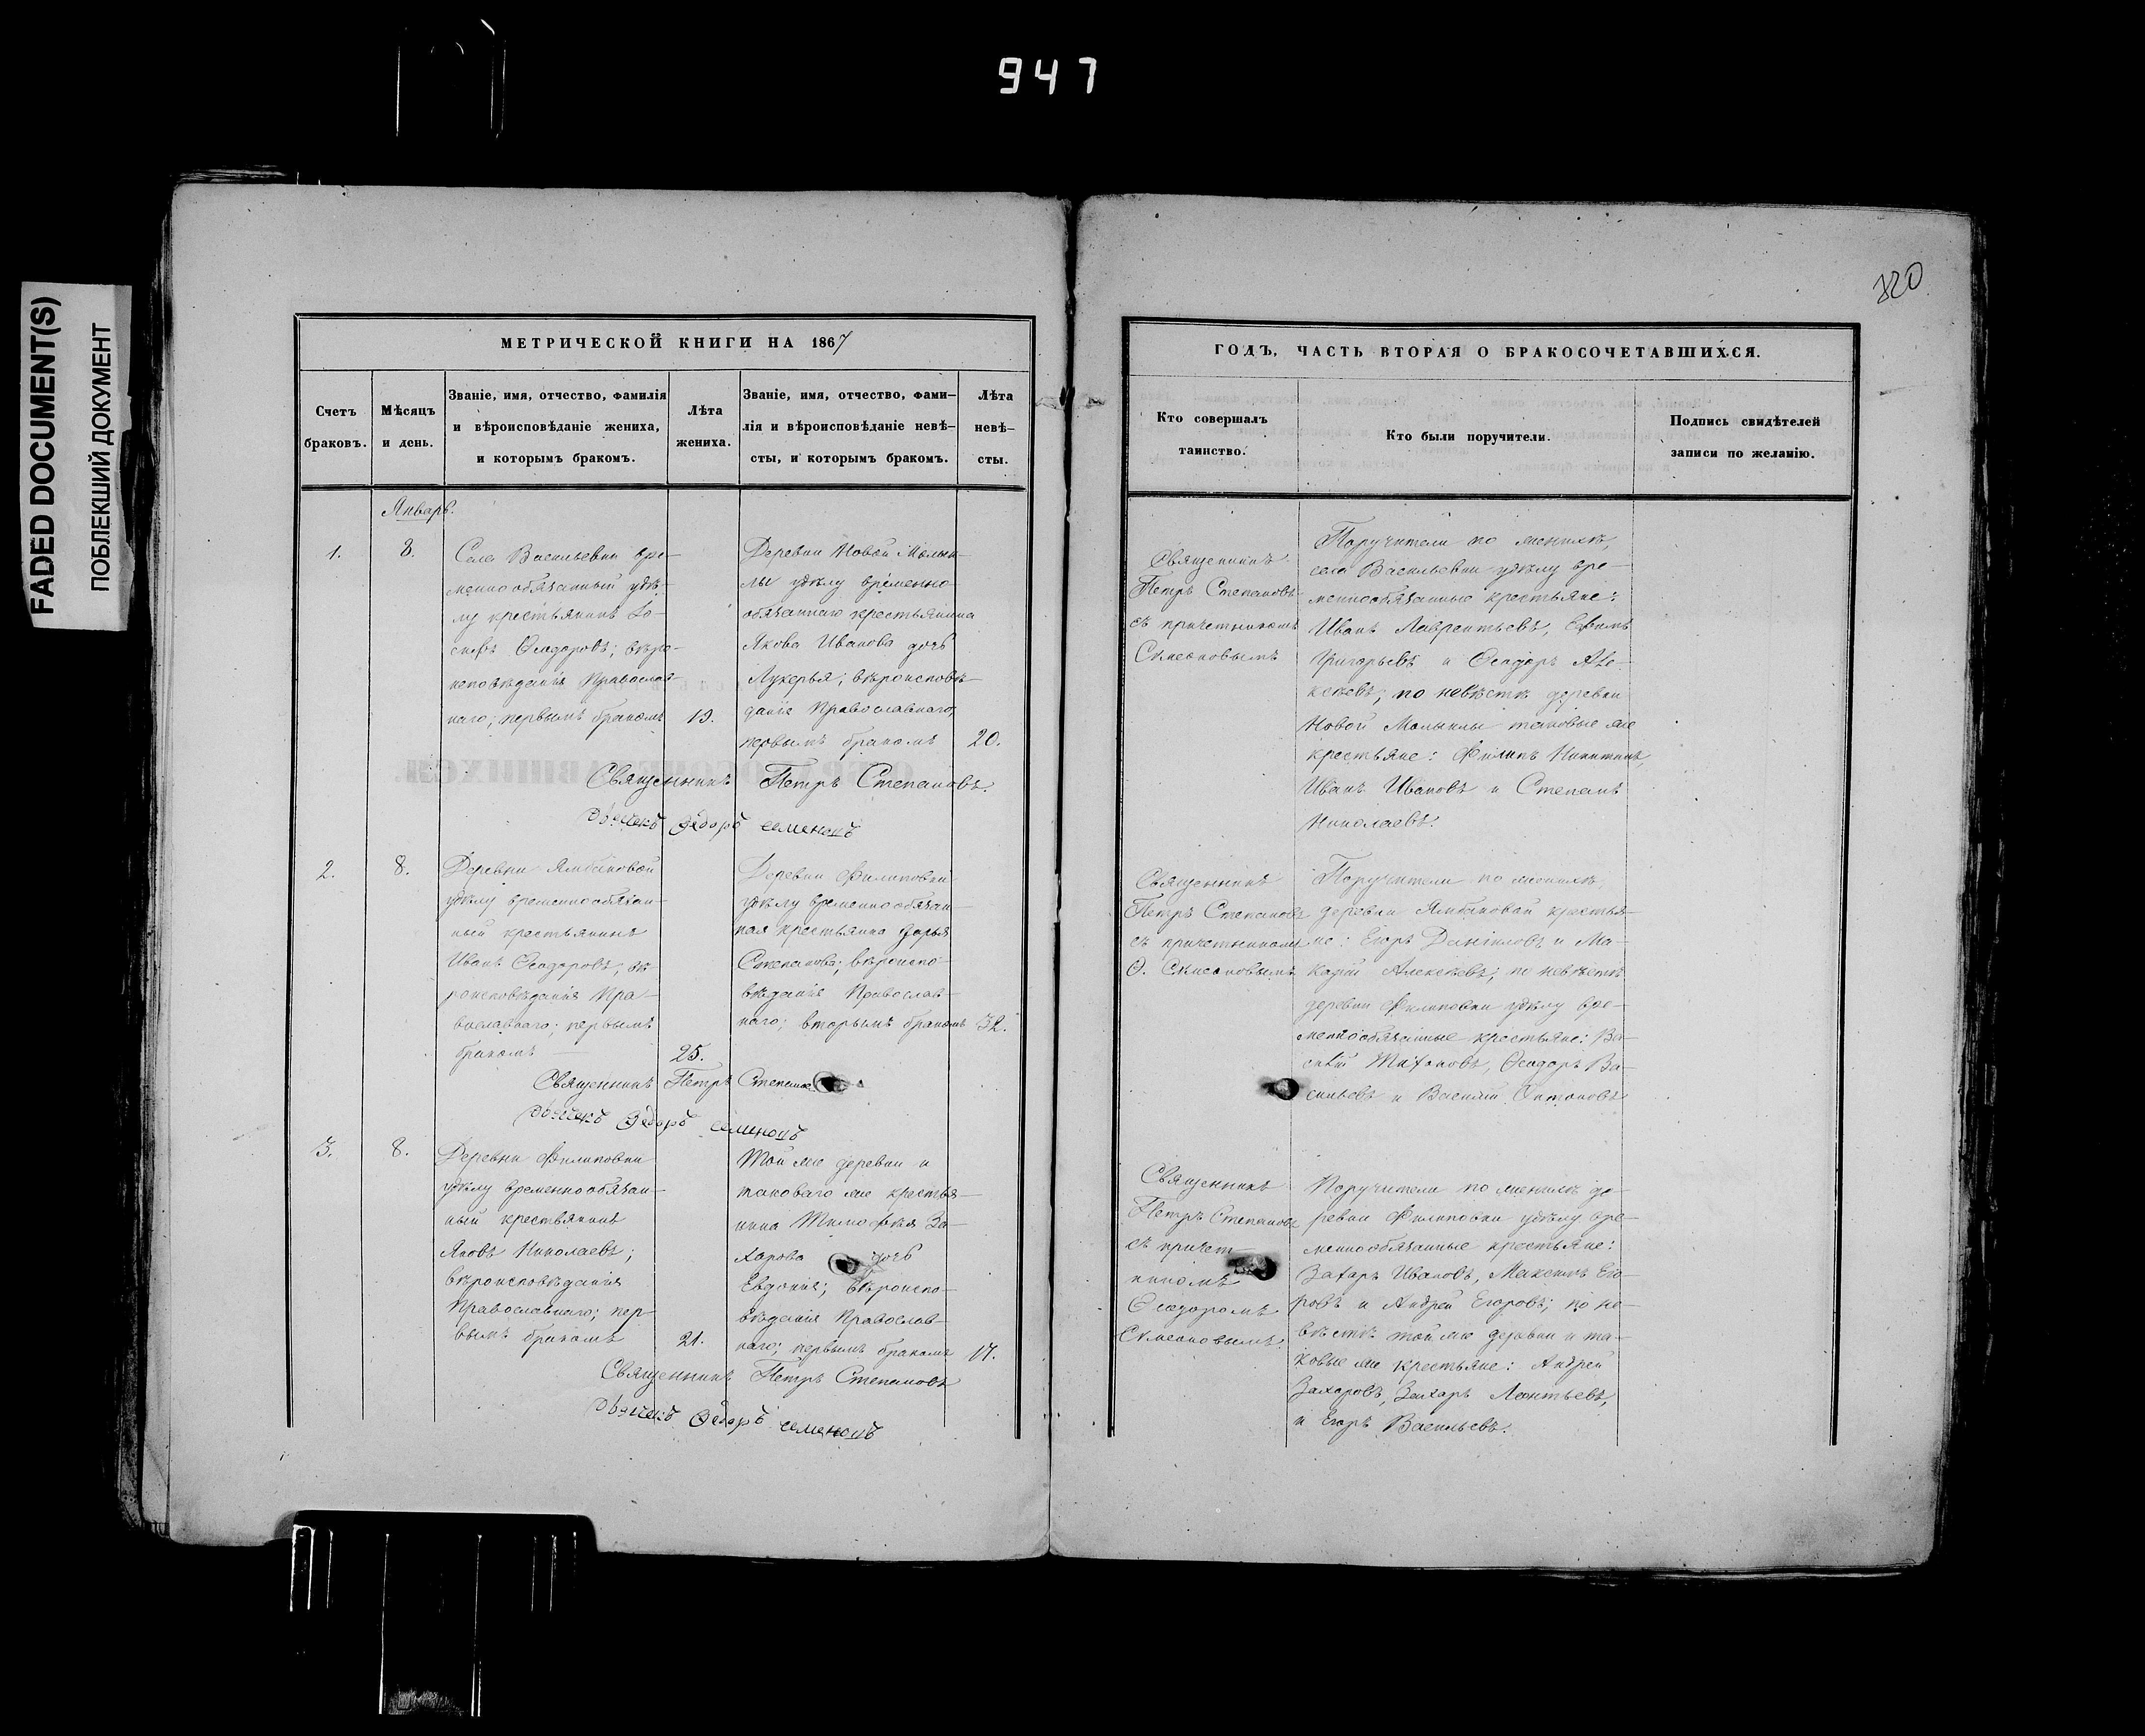 947
FADED DOCUMENT(S)
ПОБЛЕКШИЙ ДОКУМЕНТ
320
МЕТРИЧЕСКОЙ КНИГИ НА 1867
Счетъ браковъ.
Мѣсяцъ и день.
Званіе, имя, отчество, фамилія
и вѣроисповѣданіе жениха,
и которымъ бракомъ.
Лѣта жениха.
Званіе, имя, отчество, фами-
лія и вѣроисповѣданіе невѣ-
сты, и которымъ бракомъ.
Лѣта невѣ-
сты.
Январь.
1.
8.
Села Васильевки вре-
менно обязанный удѣ-
лу крестьянинъ Іо-
сифъ Ѳеодоровъ; вѣро-
исповѣданія Православ-
наго; первымъ бракомъ
19.
Деревни Новой Малык-
лы удѣлу временно-
обязаннаго крестьянина
Якова Иванова дочь
Лукерья; вѣроисповѣ-
данія Православнаго,
первымъ бракомъ
20.
Священникъ Петръ Степановъ.
Дьячекъ Ѳедоръ Семеновъ
2.
8.
Деревни Ямбаковой
удѣлу временнообязан-
ный крестьянинъ
Иванъ Ѳеодоровъ, вѣ-
роисповѣданія Пра-
вославнаго; первымъ
бракомъ
25.
Деревни Филиповки
удѣлу временно обязан-
ная крестьянка Дарья
Степанова; вѣроиспо-
вѣданія Православ-
наго; вторымъ бракомъ
32.
Священникъ Петръ Степановъ
Дьячекъ Ѳедоръ Семеновъ
3.
8.
Деревни Филиповки
удѣлу временнообязан-
ный крестьянинъ
Яковъ Николаевъ;
вѣроисповѣданія
Православнаго; пер-
вымъ бракомъ
21.
Той же деревни и
таковаго же крестья-
нина Тимофѣя За-
харова дочь
Евдокія; вѣроиспо-
вѣданія Православ-
наго; первымъ бракомъ
17.
Священникъ Петръ Степановъ
Дьячекъ Ѳедоръ Семеновъ
ГОДЪ, ЧАСТЬ ВТОРАЯ О БРАКОСОЧЕТАВШИХСЯ.
Кто совершалъ
таинство.
Кто были поручители.
Подпись свидѣтелей
записи по желанію.
Священникъ
Петръ Степановъ
съ причетникомъ
Симеоновымъ
Поручители по женихѣ,
села Васильевки удѣлу вре-
меннообязанные крестьяне:
Иванъ Лаврентьевъ, Ефимъ
Григорьевъ и Ѳеодоръ Але-
ксѣевъ; по невѣстѣ деревни
Новой Малыклы таковые же
крестьяне: Филипъ Никитинъ,
Иванъ Ивановъ и Степанъ
Николаевъ.
Священникъ
Петръ Степановъ
съ причетникомъ
Ѳ. Симеоновымъ
Поручители по женихѣ
деревни Ямбаковой крестья-
не: Егоръ Даниловъ и Ма-
карій Алексѣевъ; по невѣстѣ
деревни Филиповки удѣлу вре-
меннообязанные крестьяне: Ва-
силій Тихоновъ, Ѳеодоръ Ва-
сильевъ и Василій Антоновъ
Священникъ
Петръ Степановъ
съ причет-
никомъ
Ѳеодоромъ
Симеоновымъ.
Поручители по женихѣ де-
ревни Филиповки удѣлу вре-
меннообязанные крестьяне:
Захаръ Ивановъ, Максимъ Его-
ровъ и Андрей Егоровъ; по не-
вѣстѣ той же деревни и та-
ковые же крестьяне: Андрей
Захаровъ, Захаръ Леонтьевъ,
и Егоръ Васильевъ.